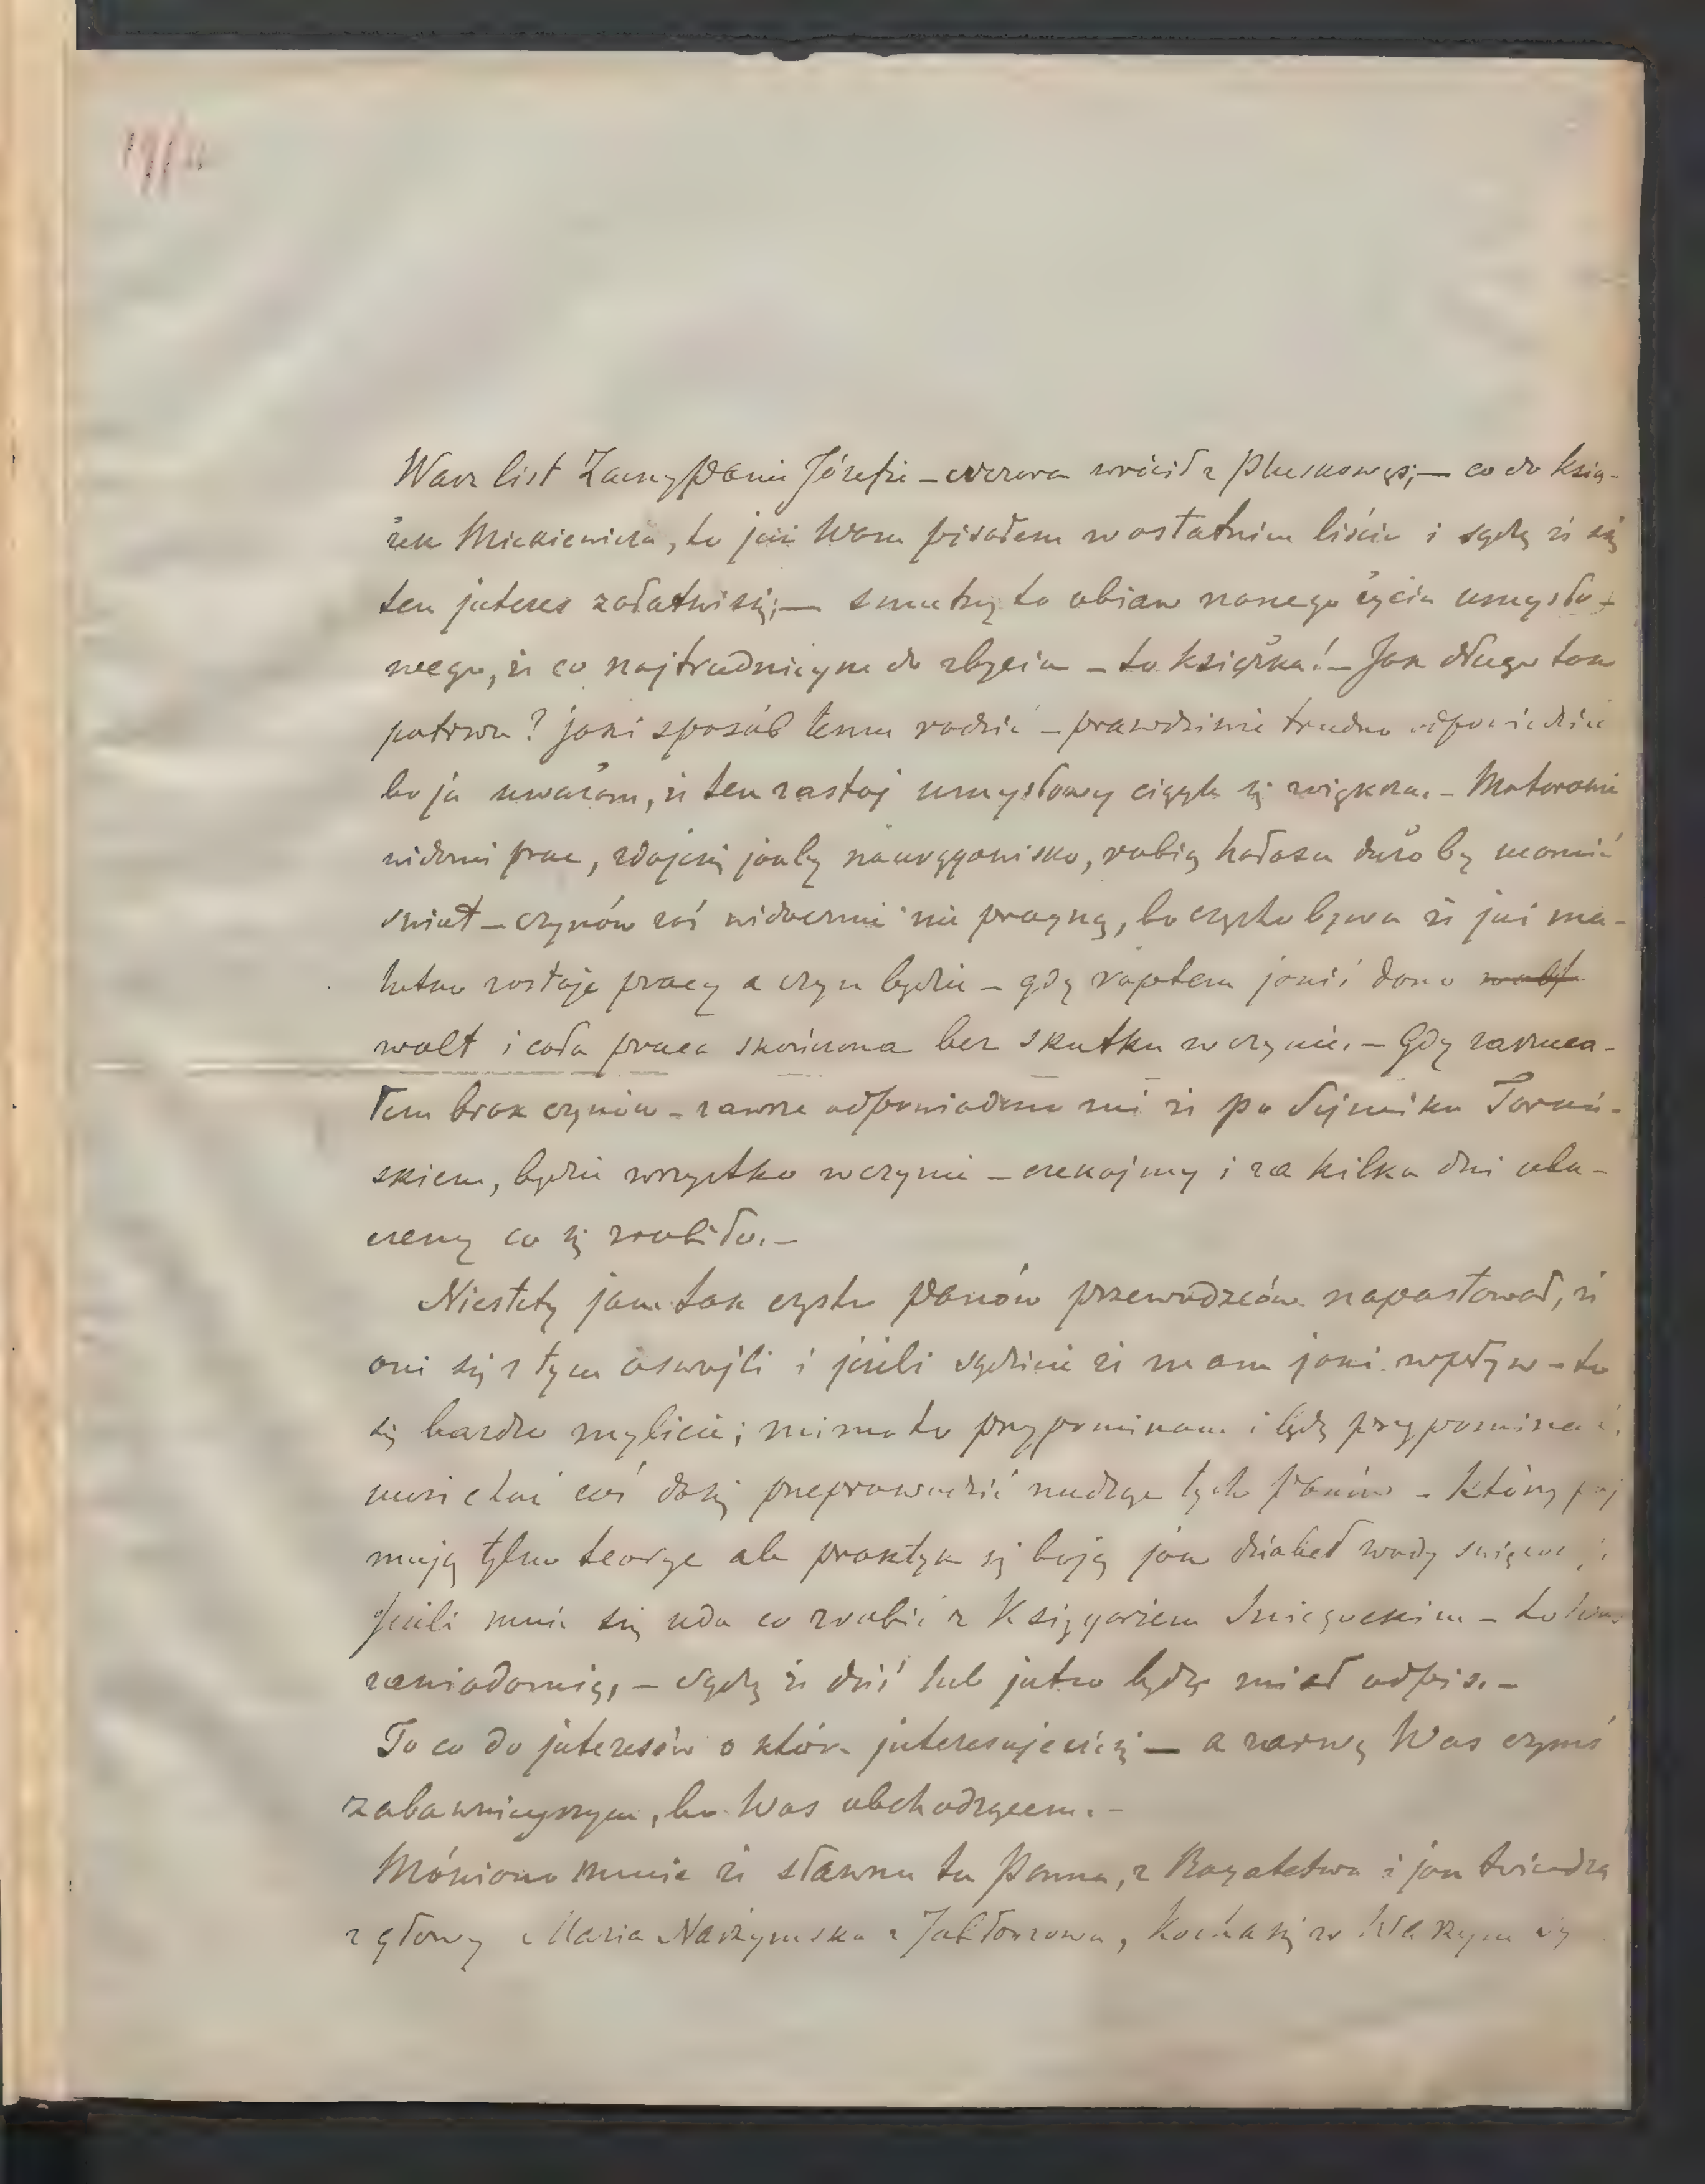 Wasz list Zacny Panie Józefie – wczoraj wrócił z Pluskowęs; – co do ksią-
żek Mickiewicza, to już Wam pisałem w ostatnim liście i sądzę iż się
ten jnteres załatwi się; – smutny to obiaw naszego życia umysło-
wego, iż co najtrudniejszym do zbycia – to książka! – Jak długo tak
potrwa? jaki sposób temu radzić – prawdziwie trudno odpowiedzieć
bo ja uważam, iż ten zastój umysłowy ciągle się zwiększa. – Motorowie
niektórni prac, zdaje się jakby na urągowisko, robią hałasu dużo by mamić
świat – czynów zaś widocznie nie pragną, bo często bywa iż już ma-
lutko zostaje pracy a czyn będzie – gdy raptem jakiś dano
walt i cała praca skończona bez skutku w czynie. – Gdy zarzuca-
łem brak czynów – zawsze odpowiadano mi iż po Sejmiku Toruń-
skiem, będzie wszystko w czynie – czekajmy i za kilka dni oba-
czemy co się zrobiło. –
Niestety jam tak często Panów przewodzców napastował, iż
oni się z tym oswojli i jeżeli sądzicie iż mam jaki wpływ – to
się bardzo mylicie; mimo to przypominam i będę przypominać
może choć coś da się przeprowadzić
mują tylko teorye ale praktyk się boją jak diabeł wody święconej
Jeżeli mnie się uda co zrobić z Księgarzem Śniegockim – to Wam
zawiadomię, – sądzę iż dziś lub jutro będę miał odpis. –
To co do jnteresów o które jnteresujecie się – a zarwę Was czymś
zabawniejszym, bo Was obchodzącem. –
Mówiono mnie iż sławna tu Panna, z Bogatstwa i jak twierdzą
z głowy Maria Narzymska z Jabłonowa, kocha się w Waszym